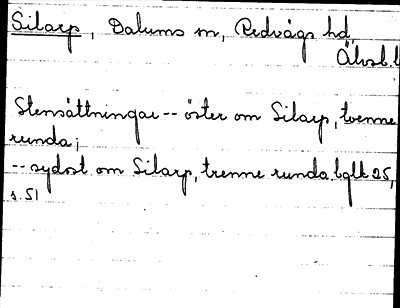 Silarp, Dalums sn, Redvägs hd,
Älvsb. l
Stensättningar -- öster om Silarp, tvenne
runda;
-- sydost om Silarp, trenne runda. bglk 25,
s. 51